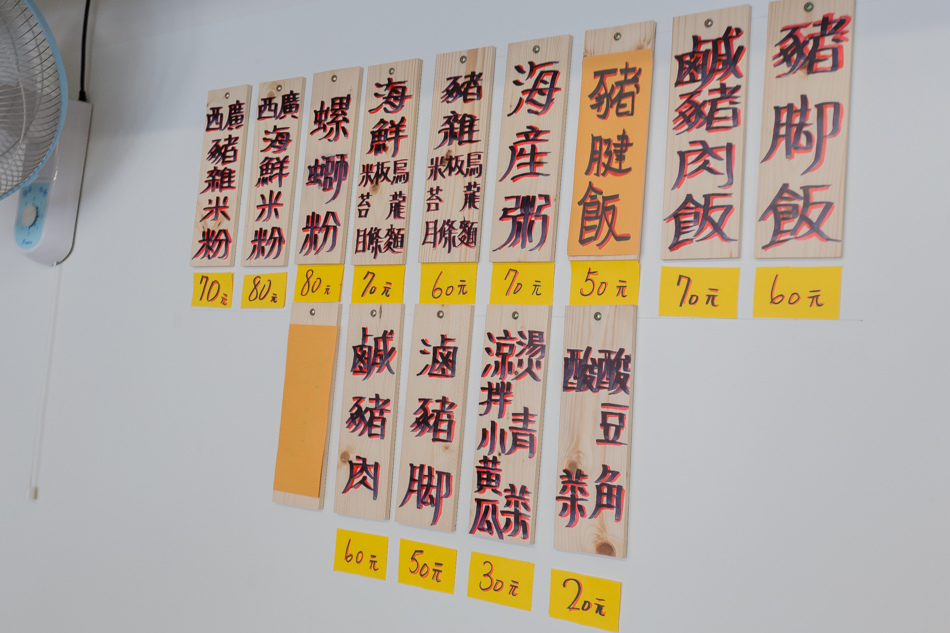 豬脚飯
60元
鹹豬肉飯
70元
豬腱飯
50元
海產粥
70元
豬雜
烏龍麵
板條
米苔目
60元
海鮮
烏龍麵
板條
米苔目
70元
螺螄粉
80元
廣西海鮮米粉
80元
廣西豬雜米粉
70元
酸豆角
酸菜
20元
燙青菜
涼拌小黃瓜
30元
滷豬脚
50元
鹹豬肉
60元